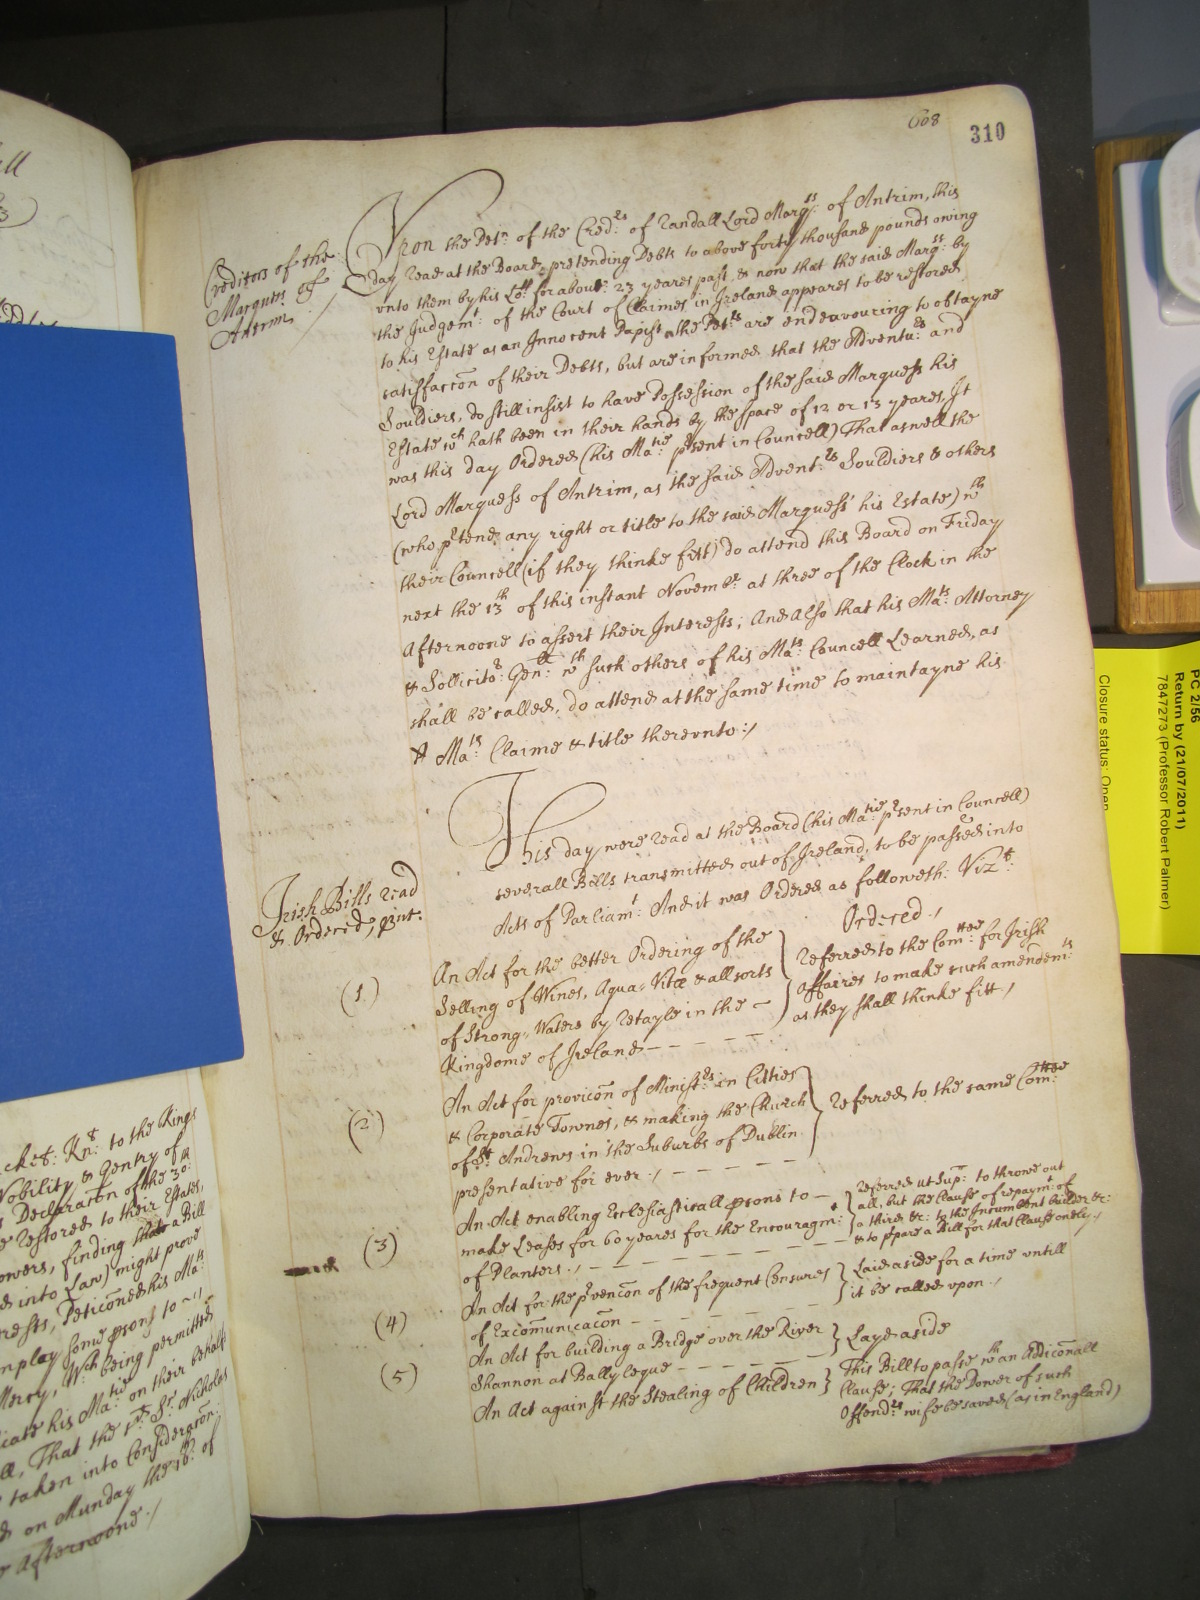 608
310
Creditors of the
Marquis of
Antrim
Upon the Petn: of the Credrs: of Randall Lord Marqss: of Antrim, this
day read at the Board, pretending Debts to above forty thousand pounds owing
vnto them by his Lopp: for about 23 yeares past, & now that the said Marqss: by
the Judgemt: of the Court of Claimes in Ireland appeares to be restored
to his Estate as an Innocent Papist, the Petrs are endeavouring to obtayne
satisfaccon of their Debts, but are informed that the Adventurs: and
Souldiers, do still insist to have Possession of the said Marquess his
Estate wch hath been in their hands by the space of 12 or 13 yeares, It
was this day Ordered (his Matie: pesent in Councell) That aswell the
Lord Marquess of Antrim, as the said Adventrs: Souldiers & others
(who pretend any right or title to the said Marquess his Estate) wth
their Councell (if they thinke fitt) do attend this Board on Friday
next the 13th of this instant Novembr: at three of the Clock in the
Afternoone to assert their Interests; And Also that his Mats: Attorney
& Sollicitor: Genll: wth such others of his Mats: Councell Learned, as
shall be called, do attend at the same time to maintayne his
Mats: Claime & title therevnto:/
Irish Bills read
& Ordered, put:
This day were read at the Board (his Matie: present in Councell)
severall Bills transmitted out of Ireland, to be passed into
Acts of Parliamt: And it was Ordered as followeth: Vizt:
Ordered./
(1)
An Act for the better Ordering of the
Selling of Wines, Aqua-Vitæ & all sorts
of Strong-Waters by retayle in the
Kingdome of Ireland
Referred to the Comttee: for Irish
Affaires to make such amendemts:
as they shall thinke fitt./
(2)
An Act for provicon of Ministers: in Citties
& Corporate Townes, & making the Church
of St: Andrews in the Suburbs of Dublin
presentative for ever./
Referred to the same Comttee:
(3)
An Act enabling Ecclesiasticall psons to
make Leases for 60 yeares for the Encouragmt:
of Planters./
Referred ut Supa: to throwe out
all, but the Clause of repaymt: of
a third &c: to the Incumbent builder &c:
& to prepare a Bill for that Clause onely./
(4)
An Act for the prevencon of the frequent Censures
of Excomunicacon
Laid aside for a time vntill
it be called vpon./
(5)
An Act for building a Bridge over the River
Shannon at Ballyleague
Layd aside
An Act against the Stealing of Children
This Bill to passe wth an Addiconall
Clause; That the Dower of such
Offendrs: wife be saved (as in England)
Knt: to the Kings
Nobility & Gentry of
Declaration of the 30th:
restored to their Estates,
finding that a Bill
into Law) might prove
Peticoned his Mats:
employ some psons to
Mercy, Wch being permitted
his Matie: on their behalf
That the sd: Sr: Nicholas
taken into Consideracon:
on Munday the 18th: of
Afternoone./
PC 2/56
Return by (21/07/2011)
7847273 (Professor Robert Palmer)
Closure status: Open